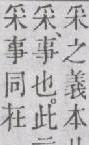 采之義本
采事也。此
采事同在